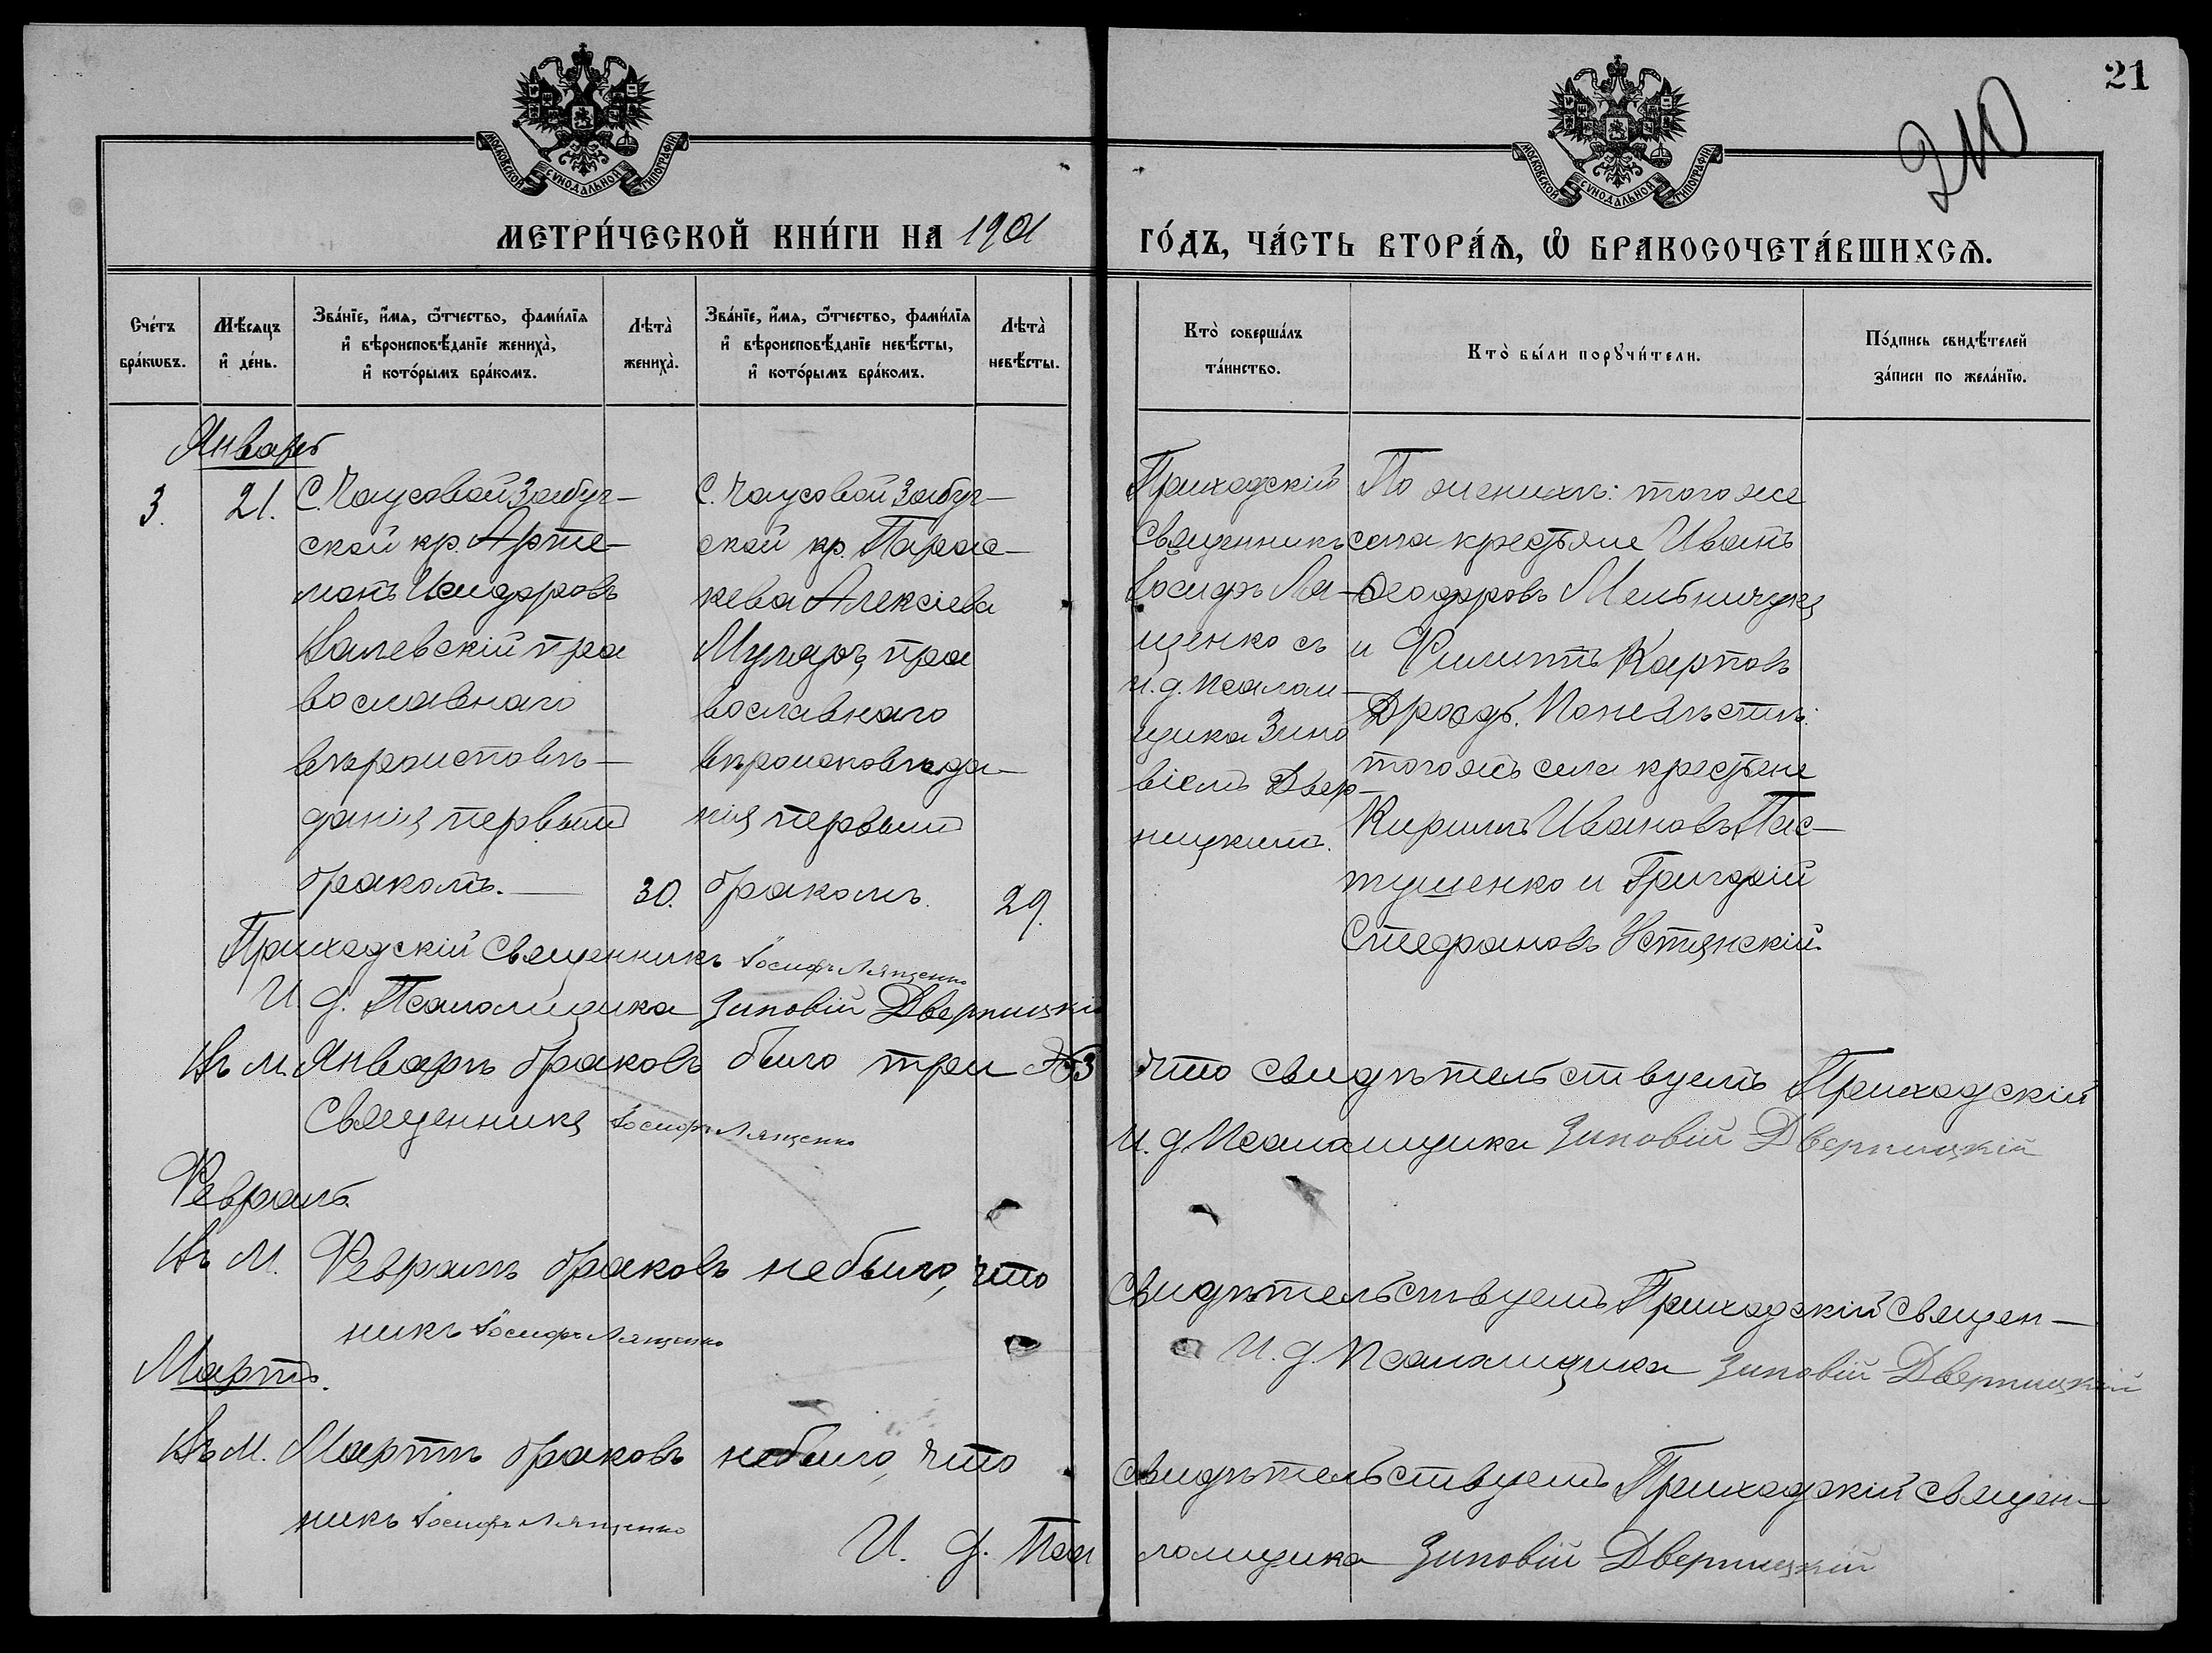 21
210
МОСКОВСКОЙ СѴНОДАЛЬНОЙ ТИПОГРАФІИ
МОСКОВСКОЙ СѴНОДАЛЬНОЙ ТИПОГРАФІИ
МЕТРИ́ЧЕСКОЙ КНИ́ГИ НА 1901
ГО́ДЪ, ЧА́СТЬ ВТОРА́Ѧ, Ѽ БРАКОСОЧЕТА́ВШИХСѦ.
Сче́тъ
бра́кѡвъ.
Мѣ́сѧцъ
и҆ де́нь.
Зва́нїе, и҆́мѧ, ѻ҆́тчество, фами́лїѧ
и҆ вѣроисповѣ́данїе жениха̀,
и҆ кото́рымъ бра́комъ.
Лѣта̀
жениха̀.
Зва́нїе, и҆́мѧ, ѻ҆́тчество, фами́лїѧ
и҆ вѣроисповѣ́данїе невѣ́сты,
и҆ кото́рымъ бра́комъ.
Лѣта̀
невѣ́сты.
Кто̀ соверша́лъ
та́инство.
Кто̀ бы́ли порꙋчи́тели.
По́дпись свидѣ́телей
за́писи по жела́нїю.
Январь
3.
21.
С. Чаусовой Забуг-
ской кр. Арте-
монъ Исидоровъ
Валевскій пра
вославнаго
вѣроисповѣ-
данія первымъ
бракомъ.
30.
С. Чаусовой Забуг-
ской кр. Парас-
кева Алексіева
Муляръ, пра
вославнаго
вѣроисповѣда-
нія первымъ
бракомъ.
29.
Приходскій
Священникъ
Іосифъ Ля-
щенко съ
и. д. псалом-
щика Зино
віемъ Двер-
ницкимъ.
По женихѣ: того же
села крестьяне Иванъ
Ѳеодоровъ Мельничукъ
и Филиппъ Карповъ
Дроздъ. По невѣстѣ:
тогожъ села крестьяне
Кириллъ Ивановъ Пас-
тушенко и Григорій
Стефановъ Устянскій.
Приходскій Священникъ Іосифъ Лященко
И. д. Псаломщика Зиновій Дверницкій
Въ м. Январѣ браковъ было три 3
что свидѣтельствуетъ Приходскій
Священникъ Іосифъ Лященко
И. д. Псаломщика Зиновій Дверницкій
Февраль.
Въ М. Февралѣ браковъ небыло, что
свидѣтельствуетъ Приходскій Священ-
никъ Іосифъ Лященко
И. д. Псаломщика Зиновій Дверницкій
Мартъ.
Въ М. Мартѣ браковъ небыло, что
свидѣтельствуетъ Приходскій Священ-
никъ Іосифъ Лященко
И. д. Пса
ломщика Зиновій Дверницкій